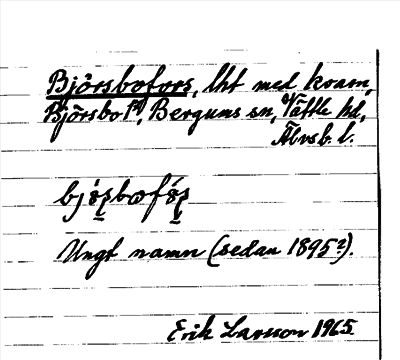 Björsbofors, lht med kvarn,
Björsbo 1²⁾, Bergums sn, Vättle hd,
Älvsb. l.
bjö́ʂbofö́ʂ
Ungt namn (sedan 1895²).
Erik Larsson 1965.